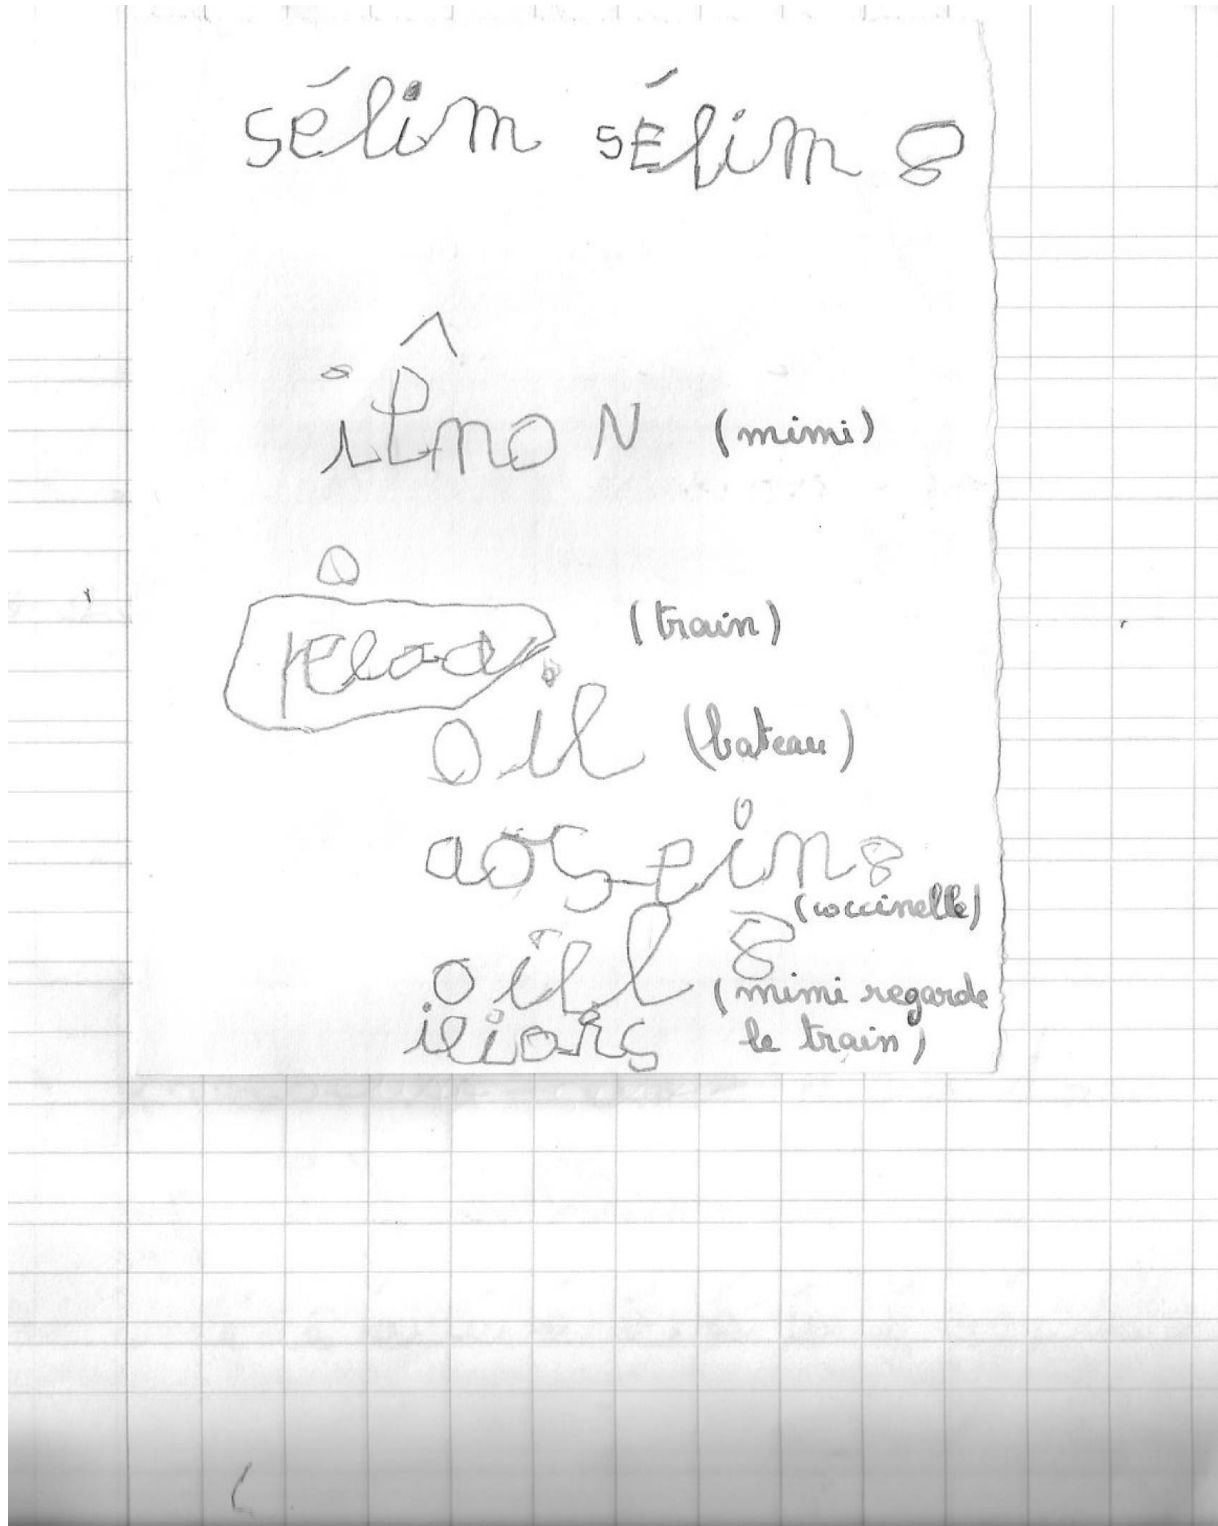 sélim sÉlim 8
itmo N (mimi)
(train)
oil (bateau)
aos eins
(coccinelle)
oill 8 (mimi regarde
le train)